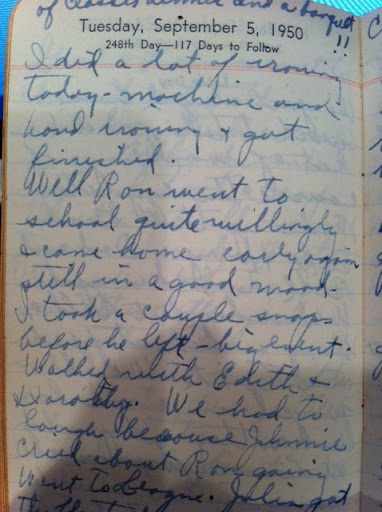 of classes dinner and a banquet
!!
Tuesday, September 5, 1950
248th Day—117 Days to Follow
I did a lot of ironing
today - machine and
hand ironing & got
finished.
Well Ron went to
school quite willingly
& came home early again
still in a good mood -
I took a couple snaps
before he left - big event.
Walked with Edith &
Dorothy. We had to
laugh because Johnnie
cried about Ron going
Went to League. Julia got